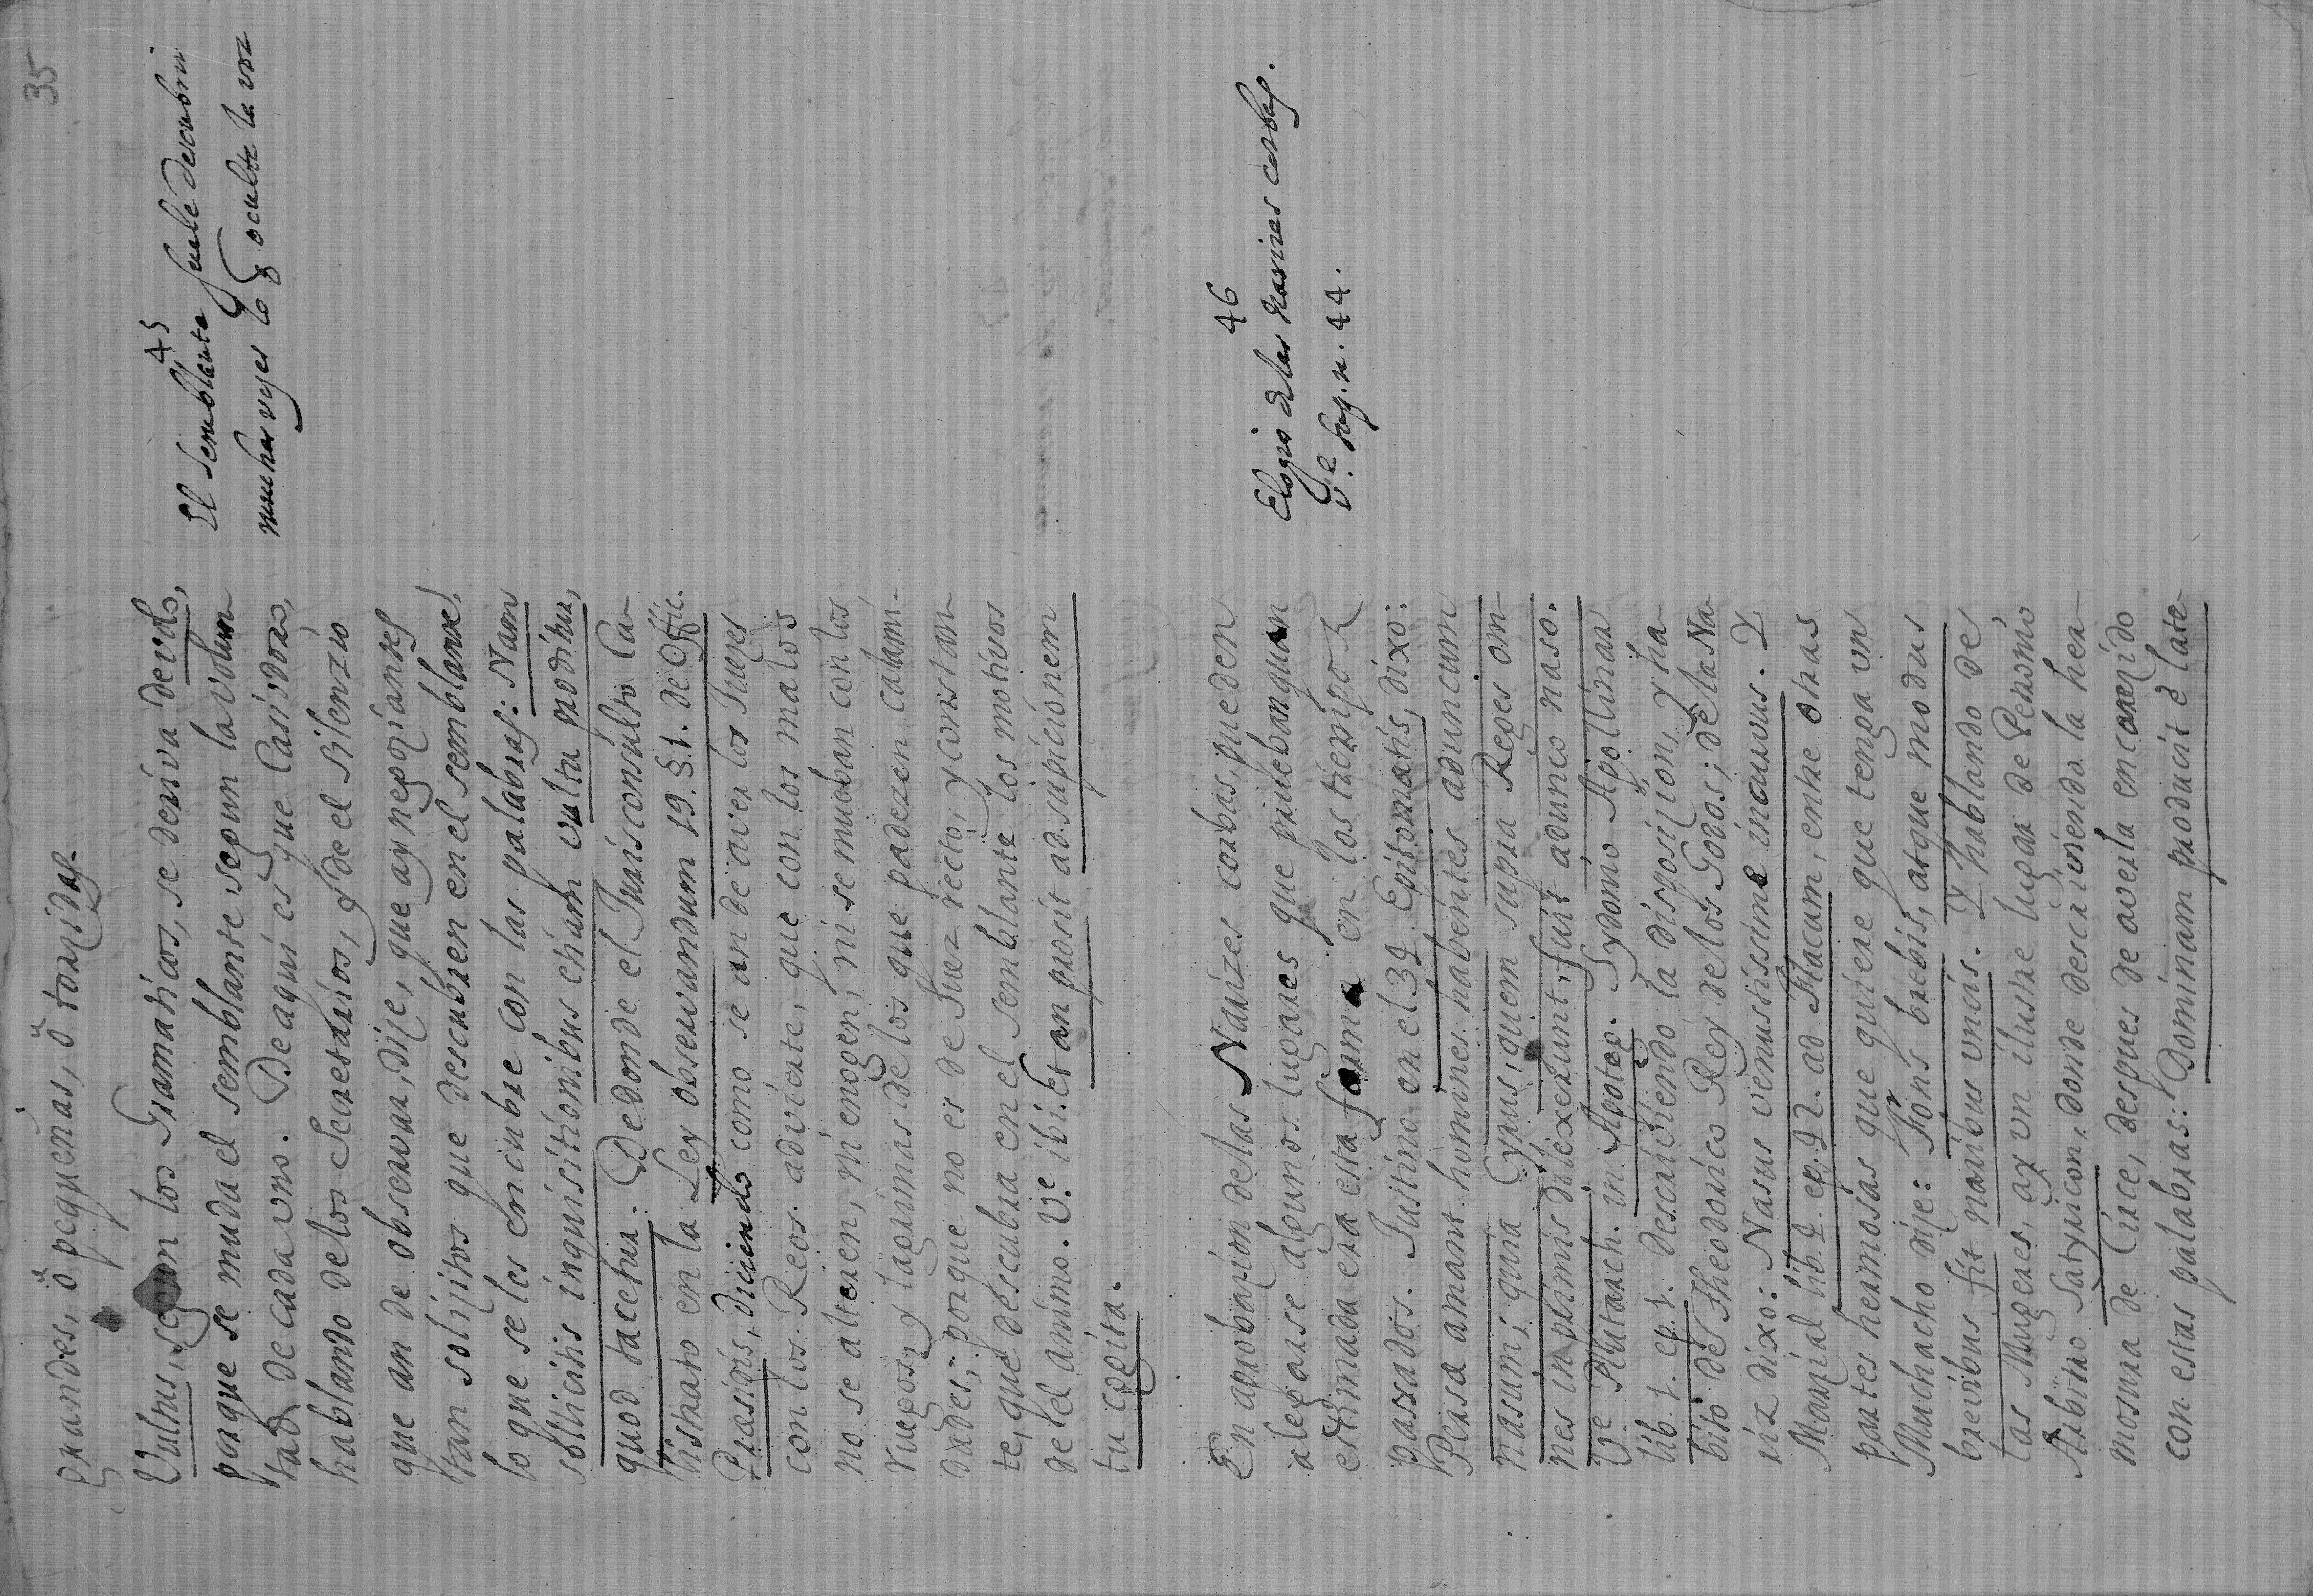 35
grandes, ò pequeñas, ò torzidas.
Vultus, segun los Gramaticos, se deriva de volo,
porque se muda el semblante segun la volun
tad de cada vno. De aqui es que Casiodoro,
hablando de los Secretarios, y de el silenzio
que an de observar, dize, que ay negoziantes
tan solizitos que descubren en el semblante,
lo que se les encubre con las palabras: Nam
sollicitis inquisitionibus etiam vultu proditur,
quod tacetur. De donde el Jurisconsulto Ca
listrato en la Ley observandum 19. §. 1. de Offic.
Præsidis, diciendo como se an de aver los Juezes
con los Reos. advierte, que con los malos
no se alteren, ni enogen, ni se muevan con los
ruegos, y lagrimas de los que padezen calami-
dades; porque no es de Juez recto, y constan
te, que descubra en el semblante los motivos
de el animo. Ve ibi. Et an prosit ad supicionem
tu cogita.
45
El semblante suele descubrir
muchas vezes lo q̃ oculta la voz
En aprobazion de las Narizes corbas, pueden
alegarse algunos lugares que prueban quan
estimada era esta forma en los tiempos
passados. Justino en el 37 Epitomatis, dixo:
Persæ amant homines habentes aduncum
nasum; quia Cyrus, quem supra Reges om
nes in primis dilexerunt, fuit adunco naso.
Ve Plutarch. in Apoteg. Sydonio Apollinar
lib. 1. ep. 1. descriviendo la disposizion, y ha
bito de Theodorico Rey de los Godos; de la Na
riz dixo: Nasus venustissime incurvus. I
Marzial lib. 4. ep. 42. ad Flacum, entre otras
partes hermosas que quiere que tenga un
Muchacho dize: Frons brebis, atque modus
breviter fit naribus uncis. I hablando de
las Mugeres, ay vn ilustre lugar de Petronio
Arbitro Satyricon, donde descriviendo la her
mosura de Circe, despues de averla encarezido
con estas palabras: Dominam producit è late
46
Elogio de las narizes corbas.
V.e sup. n. 44.